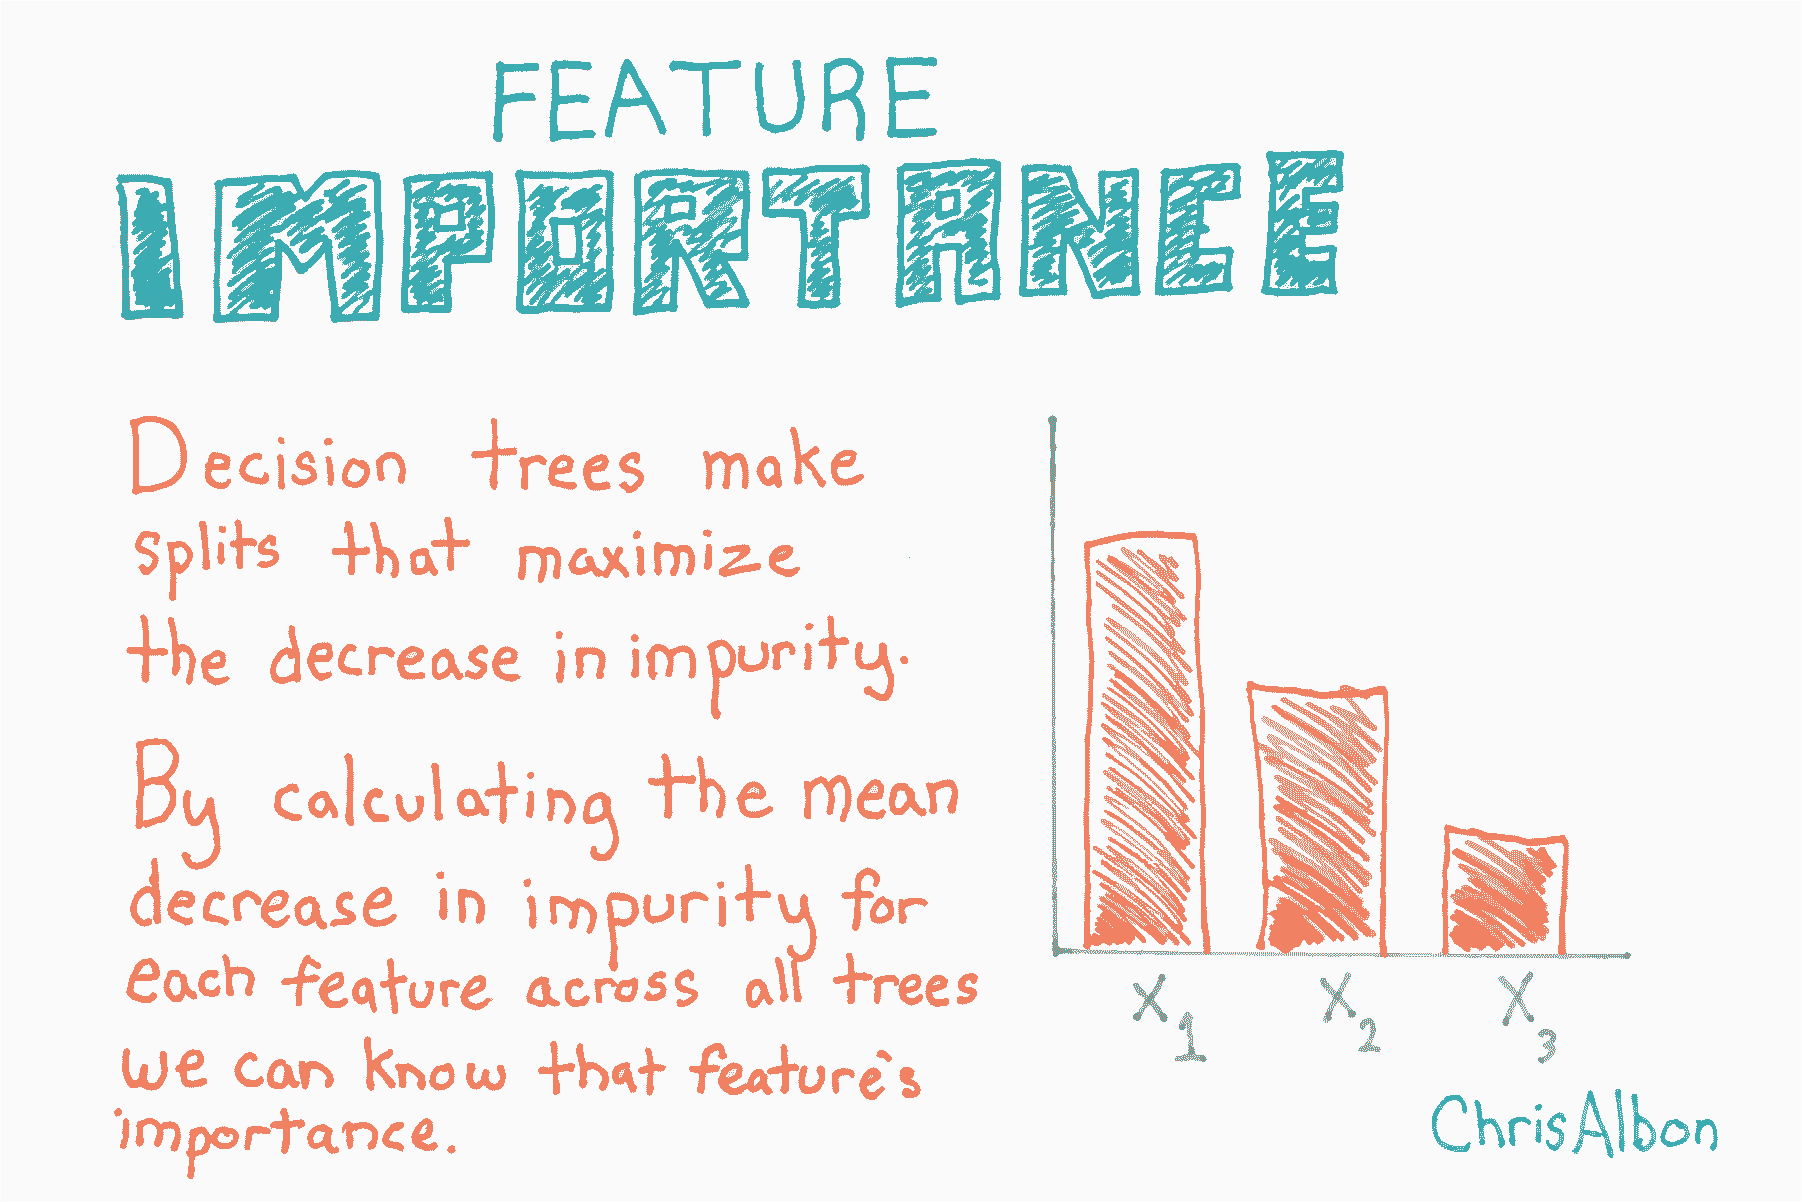 FEATURE
IMPORTANCE
Decision trees make
splits that maximize
the decrease in impurity.
By calculating the mean
decrease in impurity for
each feature across all trees
we can know that feature's
importance.
X1
X2
X3
ChrisAlbon